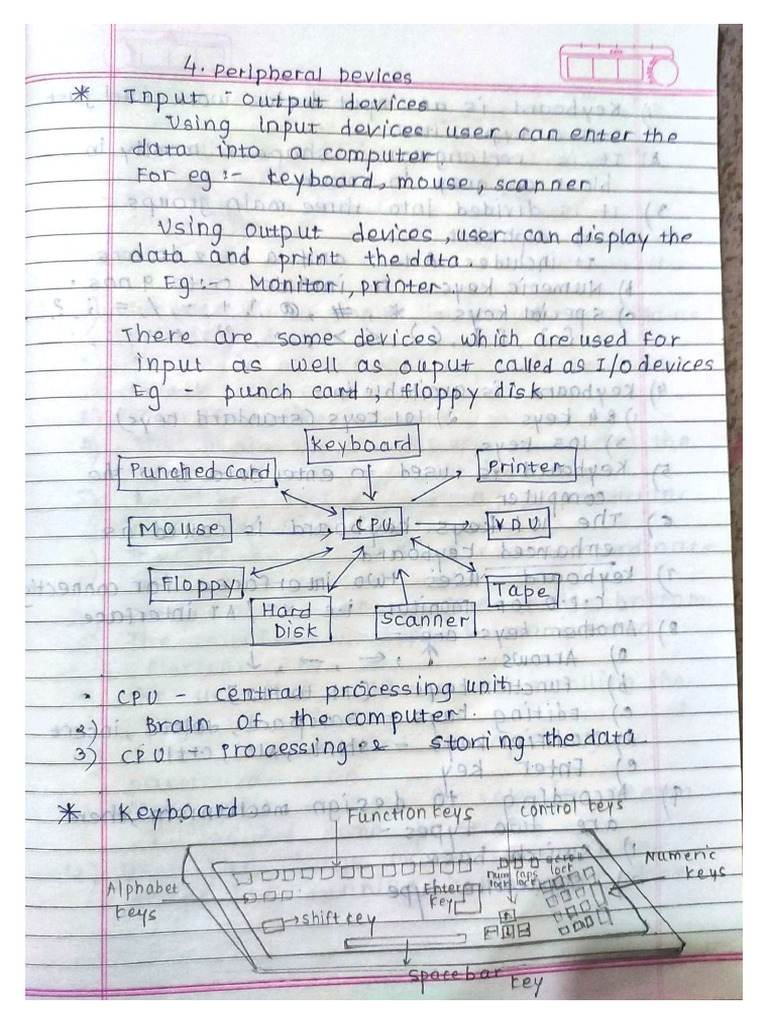 4. Peripheral Devices
* Input - output devices
Using input devices user can enter the
data into a computer.
For eg :- keyboard, mouse, scanner
Using output devices, user can display the
data and print the data.
Eg :- Monitor, printer
There are some devices which are used for
input as well as ouput called as I/O devices
Eg - punch card, floppy disk
Keyboard
Punched card
Printer
Mouse
CPU
VDU
Floppy
Tape
Hard
Disk
Scanner
• CPU - central processing unit
2) Brain of the computer.
3) CPU - Processing & storing the data.
* Keyboard
Function keys
control keys
Alphabet
keys
→shift key
Enter
key
num
lock
caps
lock
scroll
lock
Numeric
keys
spacebar
key